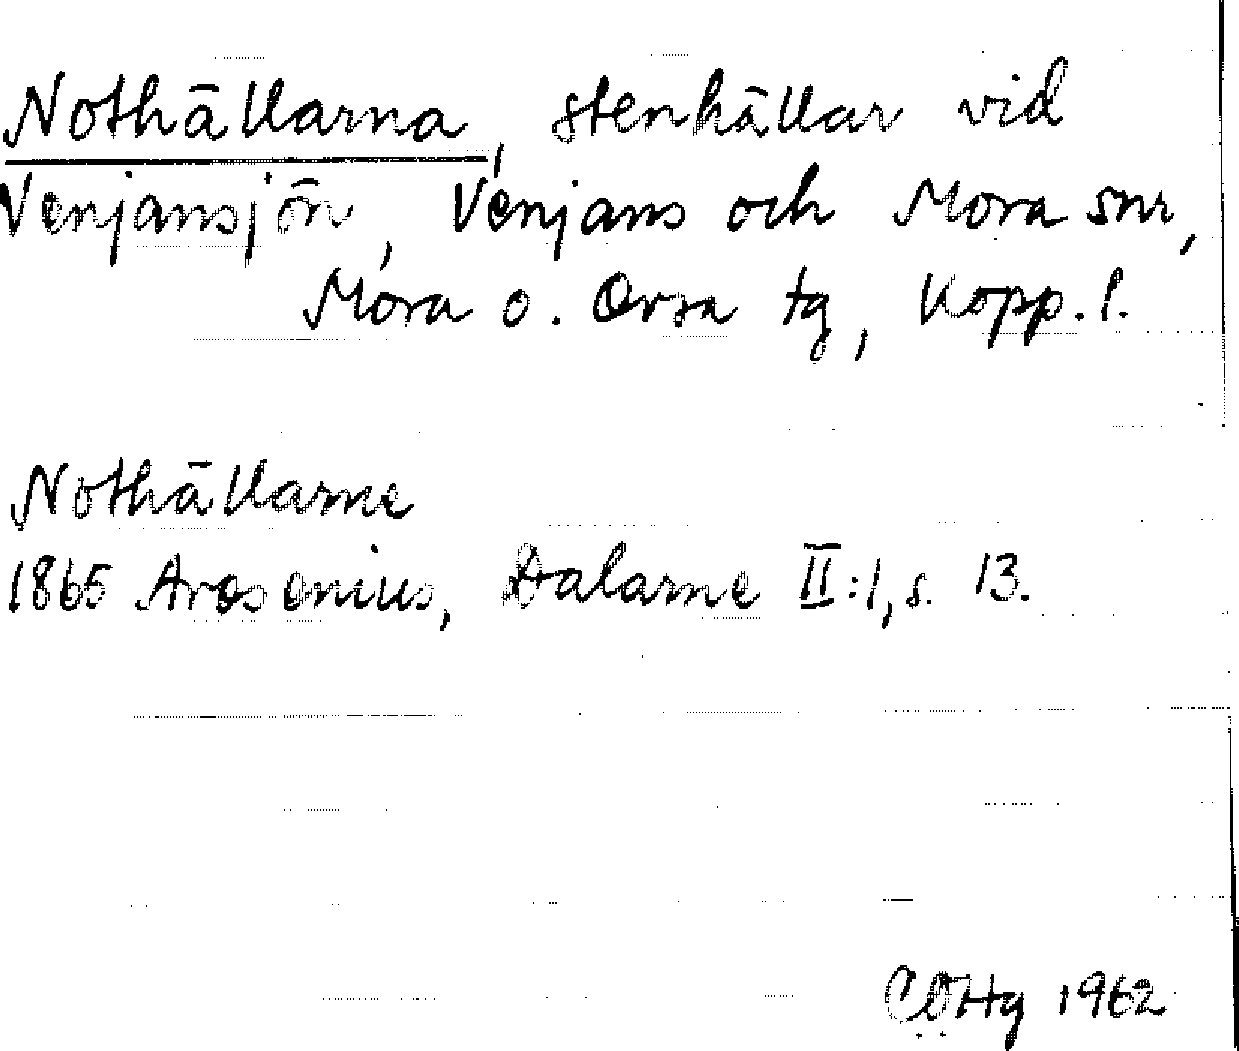 Nothällarna, stenhällar vid
Venjansjön, Venjans och Mora snr,
Mora o. Orsa tg, Kopp. l.
Nothällarne
1865 Arosenius, Dalarne II:1, s. 13.
CÖHg 1962